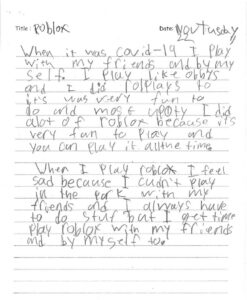 Title: roblox Date: Nov Tusday
When it was covid-19 I play
with my friends and by my
self. I play like obbys
and I did rolplays to
it's was very fun to
do and most I did
alot of roblox because it's
very fun to play and
you can play it all the time.
When I play roblox I feel
sad because I cudn't play
in the park with my
friends and I always have
to do stuf but I get time
play roblox with my friends
and by myself to.